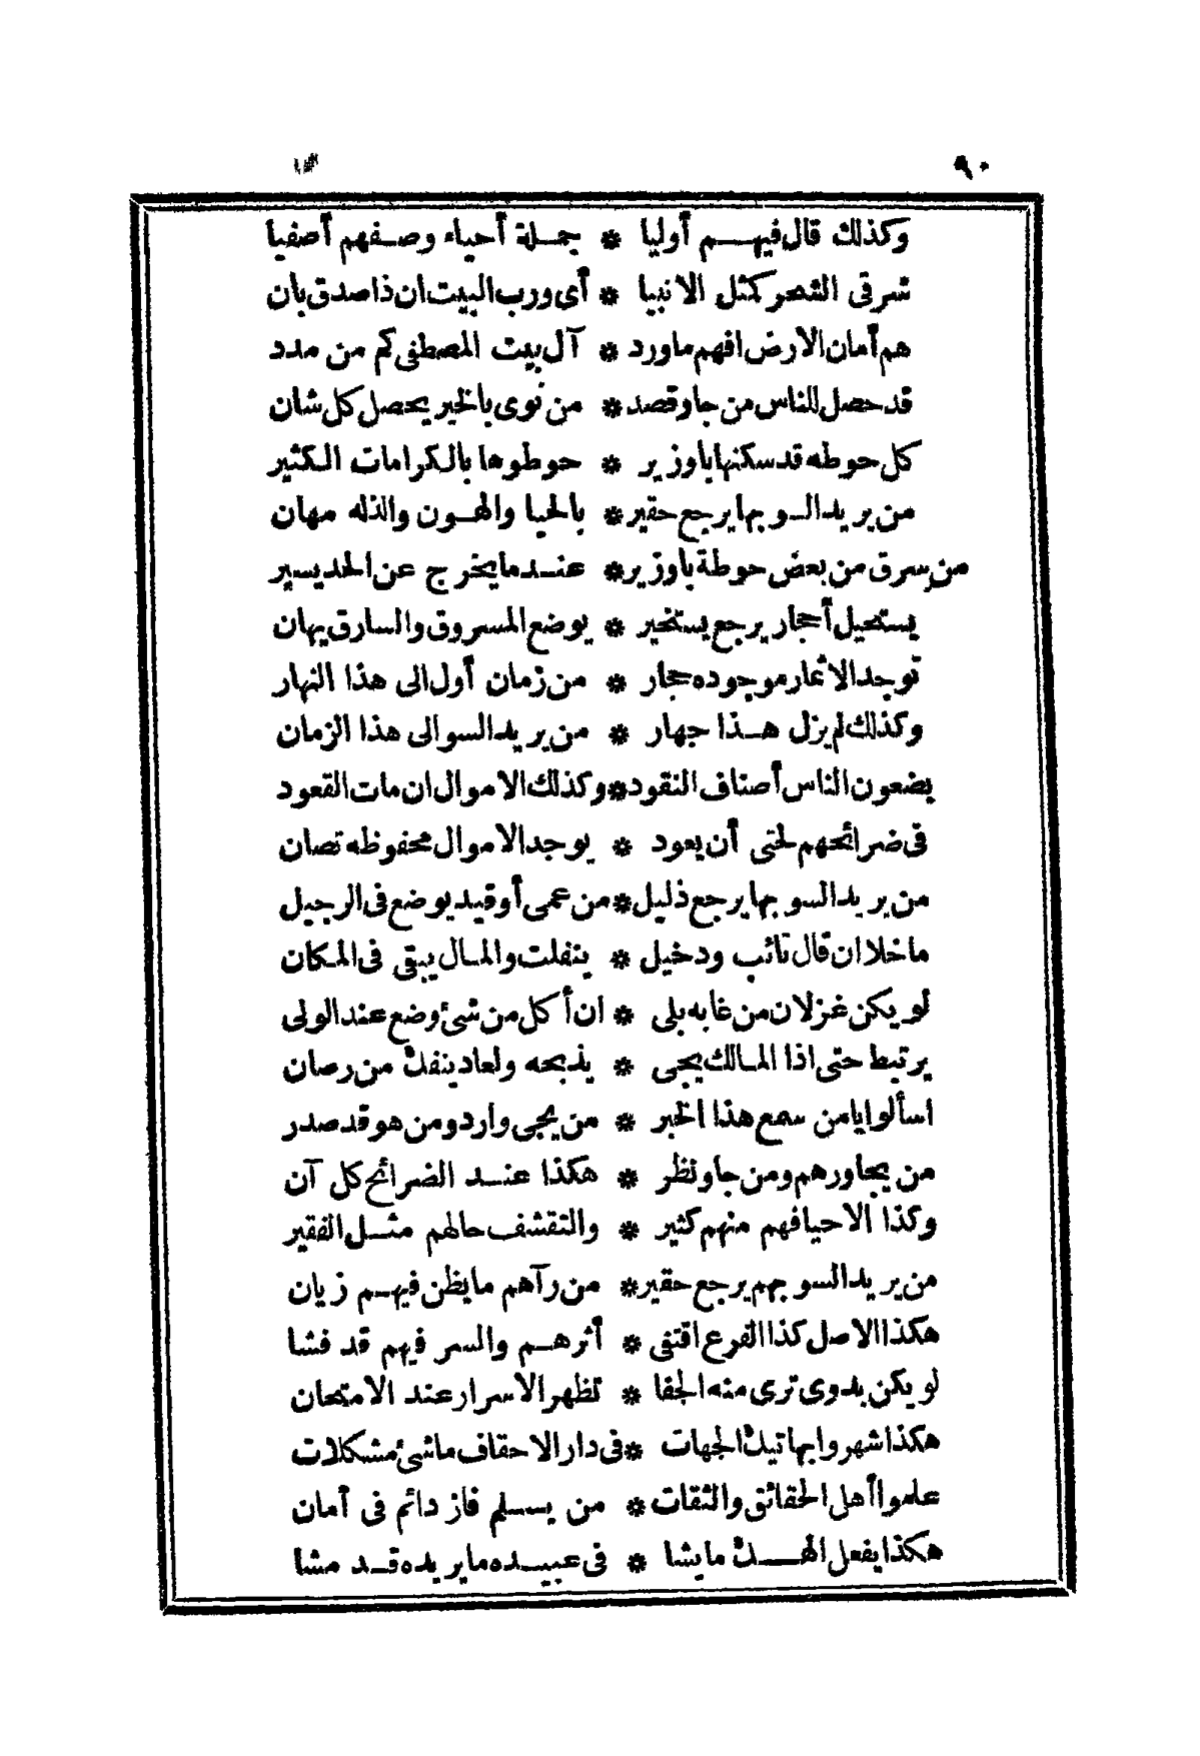 ٩٠
وكذلك قال فيهم أوليا * جملة أحياء وصفهم أصفيا
شرقى الشحر كمثل الانبيا * أى ورب البيت ان ذا صدق بان
هم أمان الارض افهم ماورد * آل بيت المصطفى كم من مدد
قد حصل للناس من جا وقصد * من نوى بالخير يحصل كل شان
كل حوطه قد سكنها باوزير * حوطوها بالكرامات الكثير
من يريد السو بها يرجع حقير * بالحيا والهون والذله مهان
من سرق من بعض حوطة باوزير * عندما يخرج عن الحد يسير
يستحيل أحجار يرجع يستخير * يوضع المسروق والسارق يهان
توجد الاثمار موجوده حجار * من زمان أول الى هذا النهار
وكذلك لم يزل هذا جهار * من يريد السو الى هذا الزمان
يضعون الناس أصناف النقود * وكذلك الاموال ان مات القعود
فى ضرائحهم لحتى أن يعود * يوجد الاموال محفوظه تصان
من يريد السو بها يرجع ذليل * من عمى أو قيد يوضع فى الرجيل
ما خلا ان قال تائب ودخيل * ينفلت والمال يبقى فى المكان
لو يكن غزلان من غابه بلى * ان أكل من شئ وضع عند الولى
يرتبط حتى اذا المالك يجى * يذبحه ولعاد ينفك من رصان
اسألوا يا من سمع هذا الخبر * من يجى وارد ومن هو قد صدر
من يجاورهم ومن جا ونظر * هكذا عند الضرائح كل آن
وكذا الاحيا فهم منهم كثير * والتقشف حالهم مثل الفقير
من يريد السو بهم يرجع حقير * من رآهم ما يظن فيهم زيان
هكذا الاصل كذا الفرع اقتفى * أثرهم والسر فيهم قد فشا
لو يكن بدوى ترى منه الجفا * تظهر الاسرار عند الامتحان
هكذا شهروا بهاتيك الجهات * فى دار الاحقاف ماشئ مشكلات
علموا أهل الحقائق والثقات * من يسلم فاز دائم فى أمان
هكذا يفعل الهك ما يشا * فى عبيده ما يريده قد مشا